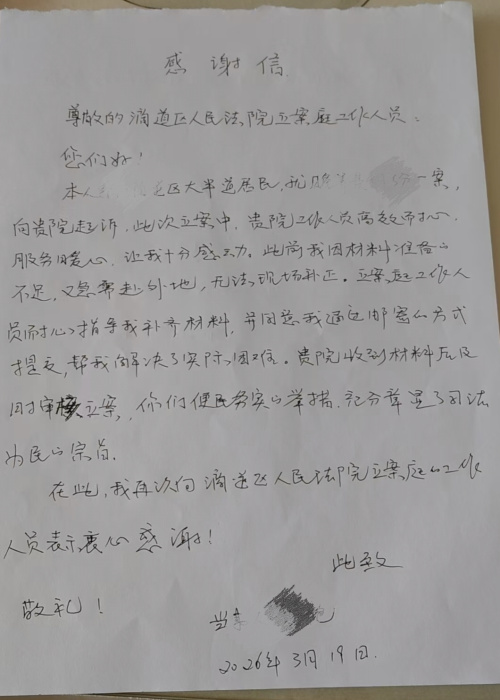 感谢信
尊敬的滴道区人民法院立案庭工作人员:
您们好!
本人 区大半道居民,就 一案,
向贵院起诉,此次立案中,贵院工作人员高效而耐心,
服务暖心,让我十分感动。此前我因材料准备的
不足,又急需赴外地,无法现场补正。立案庭工作人
员耐心指导我补齐材料,并同意我通过邮寄的方式
提交,帮我解决了实际困难。贵院收到材料后及
时审核立案,你们便民务实的举措,充分彰显了司法
为民的宗旨。
在此,我再次向滴道区人民法院立案庭的工作
人员表示衷心感谢!
此致
敬礼!
当事
2026年3月19日.